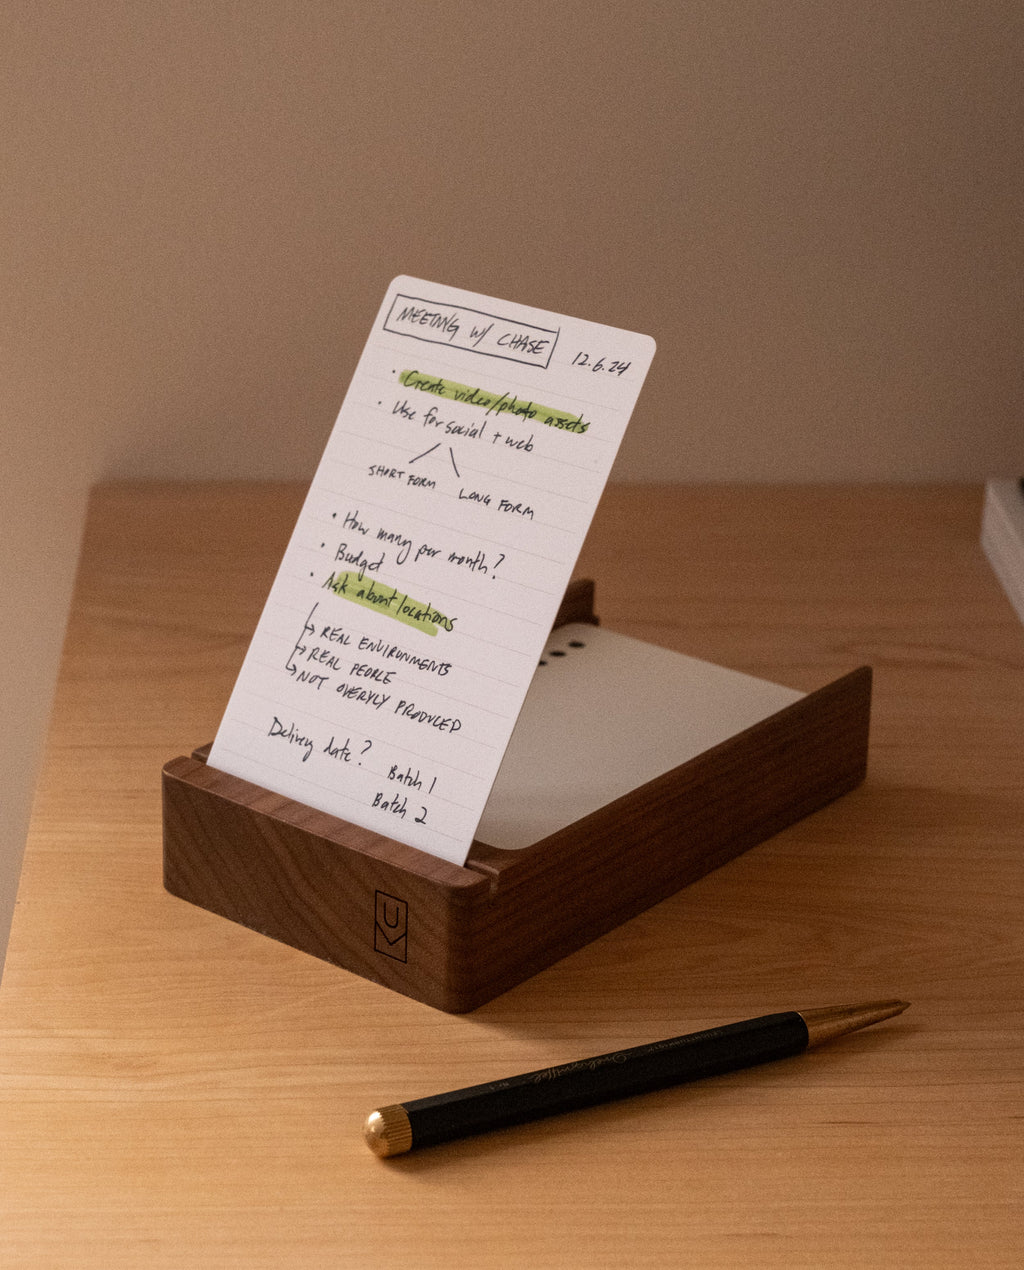 MEETING W/ CHASE
12.6.24
• Create video/photo assets
• Use for social + web
SHORT FORM
LONG FORM
• How many per month?
• Budget
• Ask about locations
→ REAL ENVIRONMENTS
→ REAL PEOPLE
→ NOT OVERYLY PRODUCED
Delivery date?
Batch 1
Batch 2
U
Drehgriffel Nr. 1